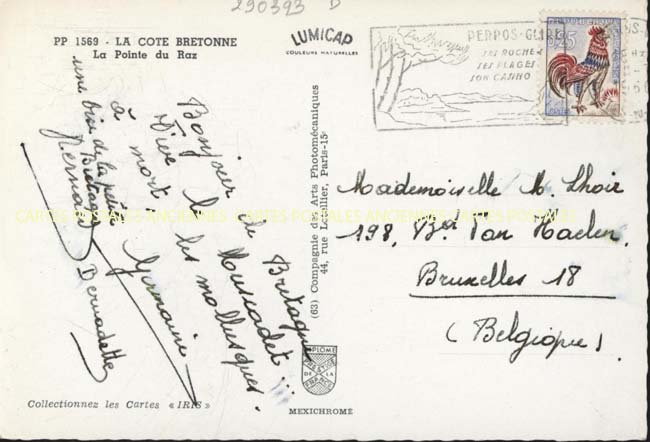 290393 D
PP 1569 - LA COTE BRETONNE
La Pointe du Raz
LUMICAP
COULEURS NATURELLES
PERROS-GUIREC
SES ROCHES
SES PLAGES
SON CASINO
0,25
Bonjour de Bretagne
Vive le Muscadet...
à mort les mollusques.
Germaine
une bise de la petite
Bernard Bernadette
(63) Compagnie des Arts Photomécaniques
44, rue Letellier, Paris-15e
Mademoiselle M. Lhoir
198, Bd Van Haelen.
Bruxelles 18
(Belgique).
CARTES POSTALES ANCIENNES CARTES POSTALES ANCIENNES CARTES POSTALES
DIPLOME
PRESTIGE
DE LA
FRANCE
Collectionnez les Cartes « IRIS »
MEXICHROME